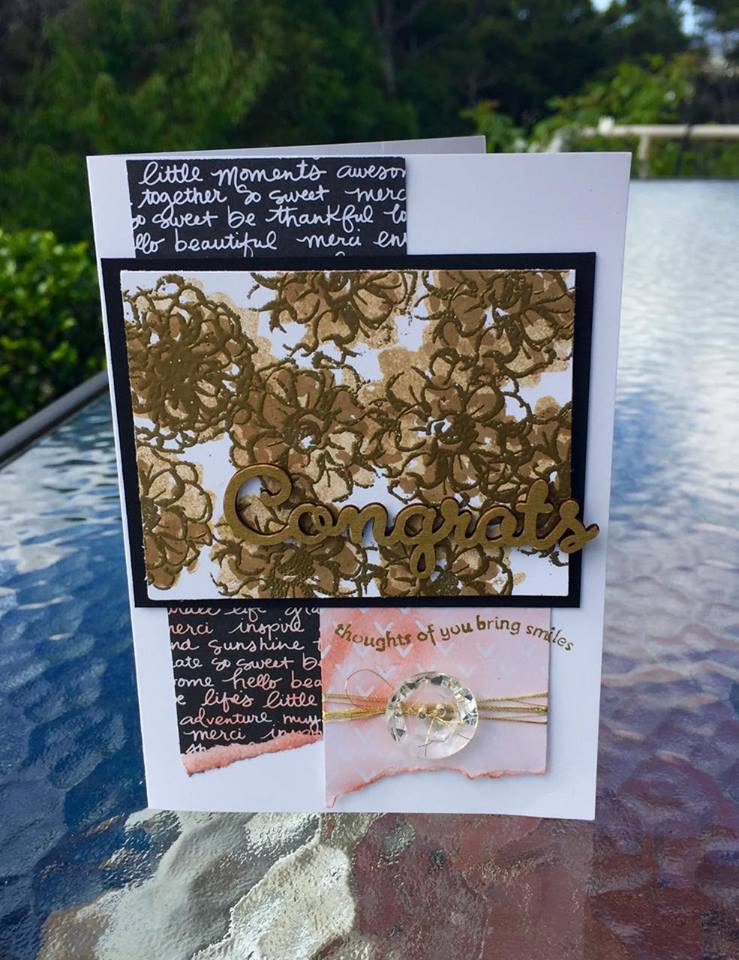 little moments aweso
together so sweet merc
so sweet be thankful lo
llo beautiful merci en
Congrats
thoughts of you bring smiles
make life gra
merci inspire
nd sunshine t
ate so sweet b
ome hello bea
e life's little
adventure muy
merci insp